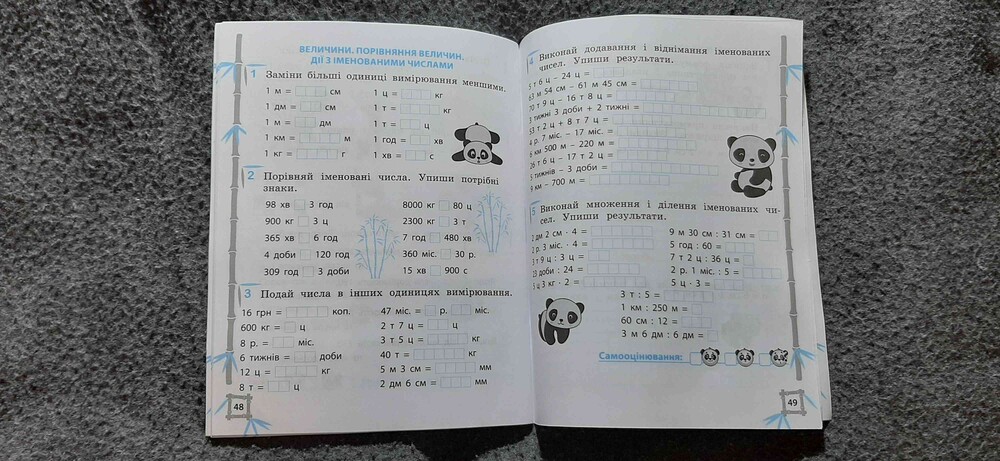 ВЕЛИЧИНИ. ПОРІВНЯННЯ ВЕЛИЧИН.
ДІЇ З ІМЕНОВАНИМИ ЧИСЛАМИ
1 Заміни більші одиниці вимірювання меншими.
1 м = см
1 дм = см
1 м = дм
1 км = м
1 кг = г
1 ц = кг
1 т = кг
1 т = ц
1 год = хв
1 хв = с
2 Порівняй іменовані числа. Упиши потрібні
знаки.
98 хв 3 год
900 кг 3 ц
365 хв 6 год
4 доби 120 год
309 год 3 доби
8000 кг 80 ц
2300 кг 3 т
7 год 480 хв
360 міс. 30 р.
15 хв 900 с
3 Подай числа в інших одиницях вимірювання.
16 грн = коп.
600 кг = ц
8 р. = міс.
6 тижнів = доби
12 ц = кг
8 т = ц
47 міс. = р. міс.
2 т 7 ц = ц
3 т 5 ц = кг
40 т = кг
5 м 3 см = мм
2 дм 6 см = мм
48
4 Виконай додавання і віднімання іменованих
чисел. Упиши результати.
5 т 6 ц – 24 ц =
63 м 54 см – 61 м 45 см =
70 т 9 ц – 16 т 8 ц =
3 тижні 3 доби + 2 тижні =
53 т 2 ц + 8 т 7 ц =
4 р. 7 міс. – 17 міс. =
6 км 500 м – 220 м =
26 т 6 ц – 17 т 2 ц =
тижнів – 3 доби =
км – 700 м =
5 Виконай множення і ділення іменованих чи-
сел. Упиши результати.
2 дм 2 см · 4 =
2 р. 3 міс. · 4 =
3 т 9 ц : 3 ц =
23 доби : 24 =
5 ц 3 кг · 2 =
9 м 30 см : 31 см =
5 год : 60 =
7 т 2 ц : 36 ц =
2 р. 1 міс. : 5 =
5 ц · 3 =
3 т : 5 =
1 км : 250 м =
60 см : 12 =
3 м 6 дм : 6 дм =
Самооцінювання:
49